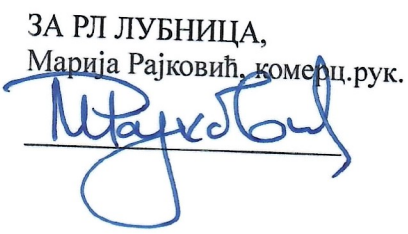 ЗА РЛ ЛУБНИЦА,
Марија Рајковић, комерц.рук.
МРајковић